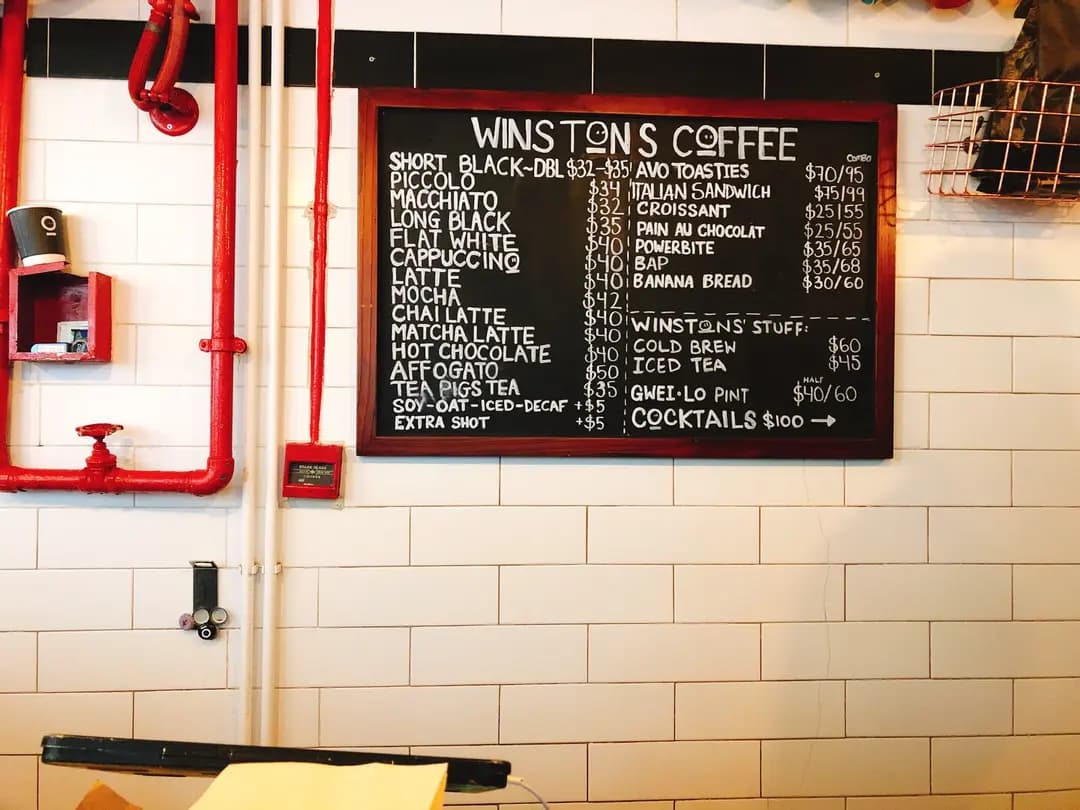 WINSTONS COFFEE
SHORT BLACK~DBL $32-$35
PICCOLO $34
MACCHIATO $32
LONG BLACK $35
FLAT WHITE $40
CAPPUCCINO $40
LATTE $40
MOCHA $42
CHAI LATTE $40
MATCHA LATTE $40
HOT CHOCOLATE $40
AFFOGATO $50
TEA PIGS TEA $35
SOY-OAT-ICED-DECAF +$5
EXTRA SHOT +$5
COMBO
AVO TOASTIES $70/95
ITALIAN SANDWICH $75/99
CROISSANT $25|55
PAIN AU CHOCOLAT $25/55
POWERBITE $35/65
BAP $35/68
BANANA BREAD $30/60
WINSTONS' STUFF:
COLD BREW $60
ICED TEA $45
HALF
GWEI·LO PINT $40/60
COCKTAILS $100 →